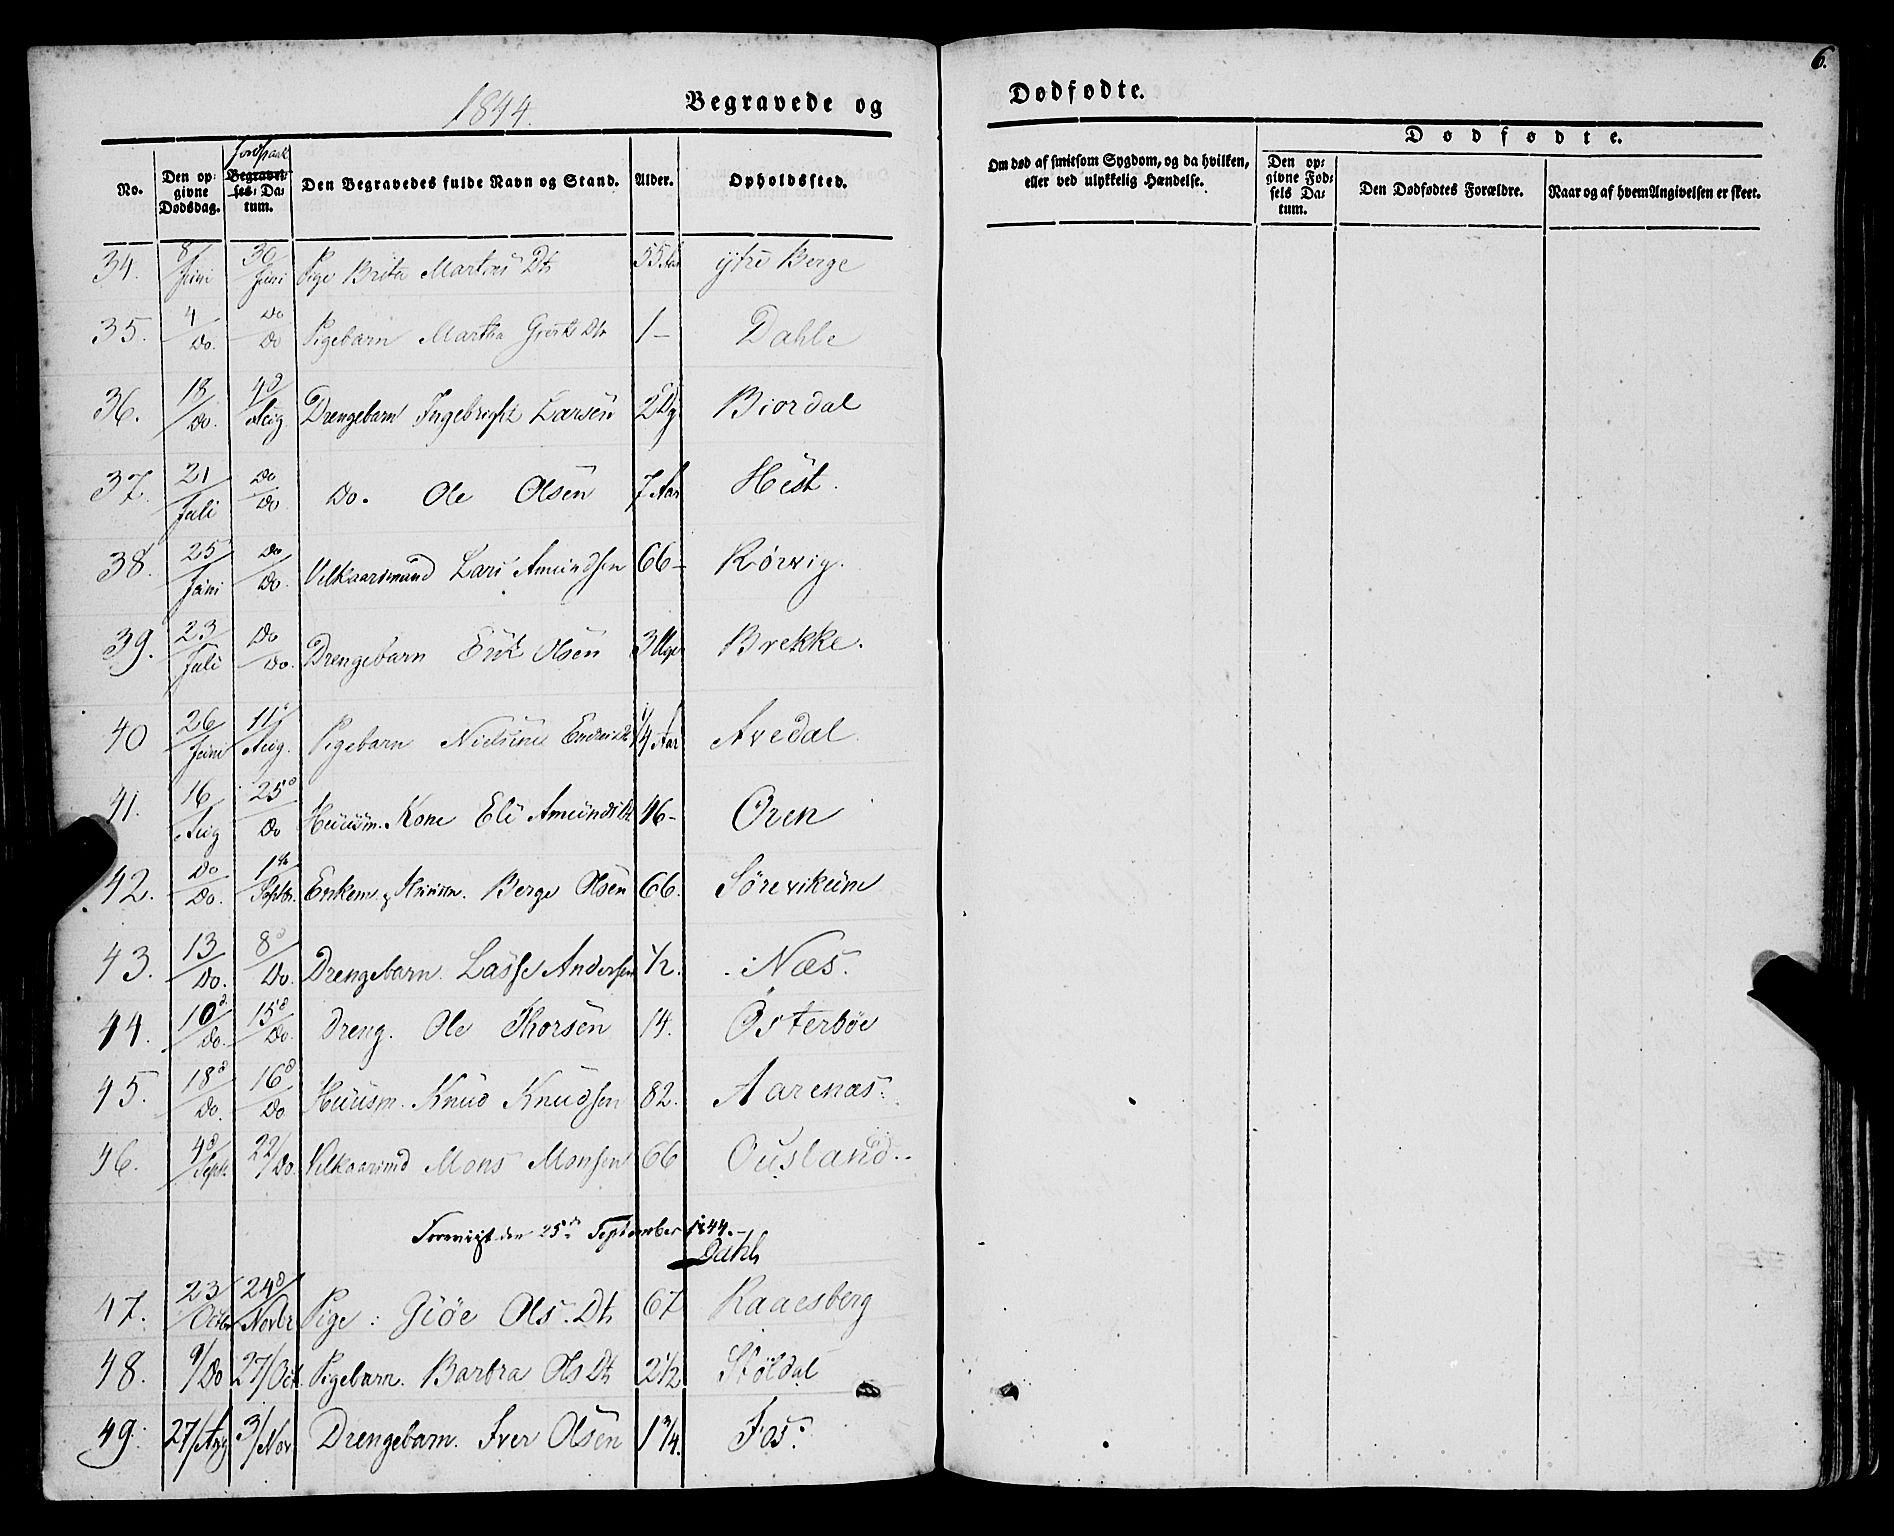 6.
1844.
Begravede og Dødfødte.
No. | Den opgivne Dødsdag. | Jordpaak Begravelses-Datum. | Den Begravedes fulde Navn og Stand. | Alder. | Opholdssted. | Om død af smitsom Sygdom, og da hvilken, eller ved ulykkelig Hændelse. | Dødfødte. | Den opgivne Fødsels Datum. | Den Dødfødtes Forældre. | Naar og af hvem Angivelsen er skeet.
34. 8/Juni 30/Juni Pige Brita Martins Dtr 55 Aar ytre Berge
35. 4/Do. Do/Do Pigebarn Martha Dtr 1 – Dahle
36. 18/Do. 4d/Aug Drengebarn Ingebright Larsen 2 Dg Biordal
37. 21/Juli Do/Do Do. Ole Olsen 7 Aar Hest.
38. 25/Juni Do/Do. Vilkaarsmand Lars Amundsen 66 – Rørvig.
39. 23/Juli Do/Do. Drengebarn Erik Olsen 3 Uger Brekke.
40 26/Juni 11/Aug. Pigebarn Nielsine 1/4 Aar Avedal
41. 16/Aug 25d/Do Huusm. Kone Eli Amunds Dt 46 – Oren
42. Do/Do. 1ste/Septbr. Enkem. & Huusm. Berge Olsen 66. Sørevikum
43. 13/Do. 8d/Do. Drengebarn. Lasse Andersen 1/2. Næs.
44. 10d/Do. 15d/Do. Dreng. Ole Thorsen 14. Østerbøe
45. 18d/Do. 16d/Do Huusm. Knud Knudsen 82. Aarenæs.
46. 4d/Sept. 22/Do. Vilkaarsmd Mons Monsen 66 Ousland.
Foreviist den 25de September 1844.
Dahl
47. 23/Octbr 24d/Novbr Pige: Giøe Ols. Dtr 67 Raaesberg
48. 9/Do 27/Oct. Pigebarn. Barbra Ols Dtr 2 1/2 Støldal
49. 27/Aug 3/Nov. Drengebarn. Iver Olsen 1 3/4. Fos.